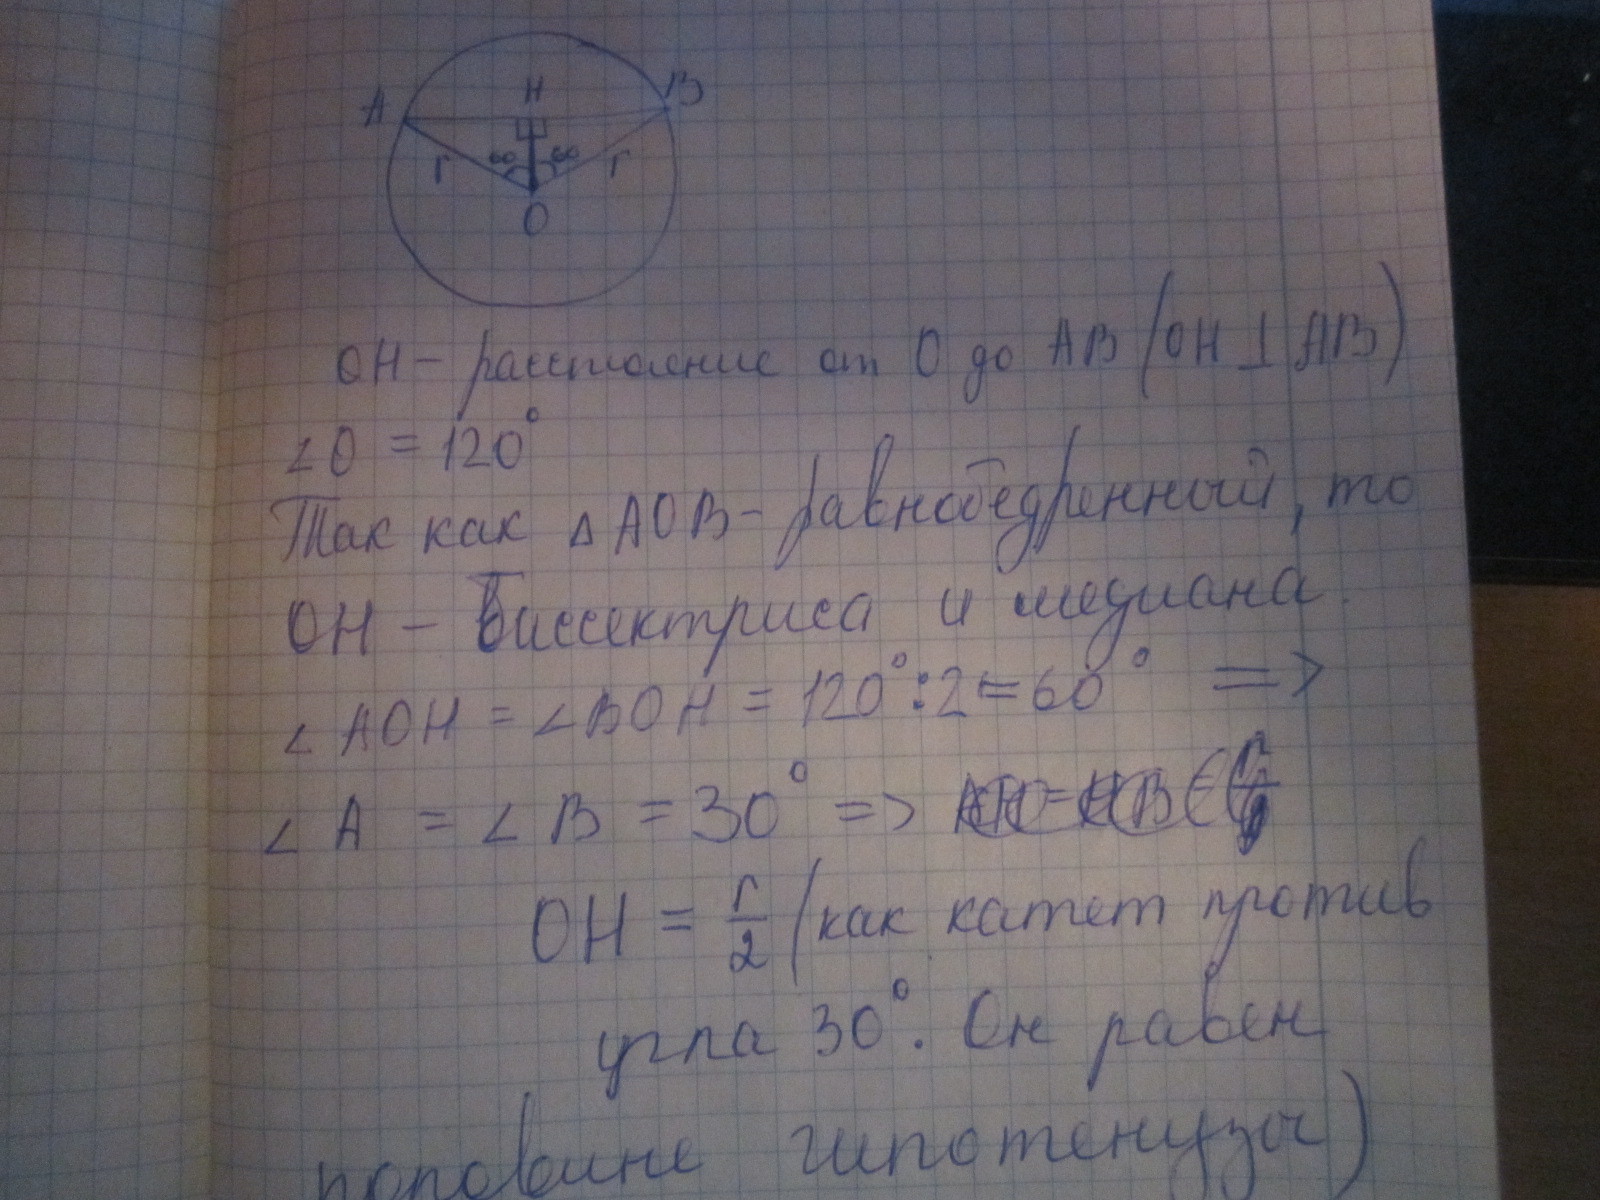 H
A
B
r
60
60
r
O
OH - расстояние от O до AB (OH ⊥ AB)
∠O = 120°
Так как △AOB - равнобедренный, то
OH - биссектриса и медиана.
∠AOH = ∠BOH = 120° : 2 = 60° =>
∠A = ∠B = 30° =>
OH = r/2 (как катет против
угла 30°. Он равен
половине гипотенузы)